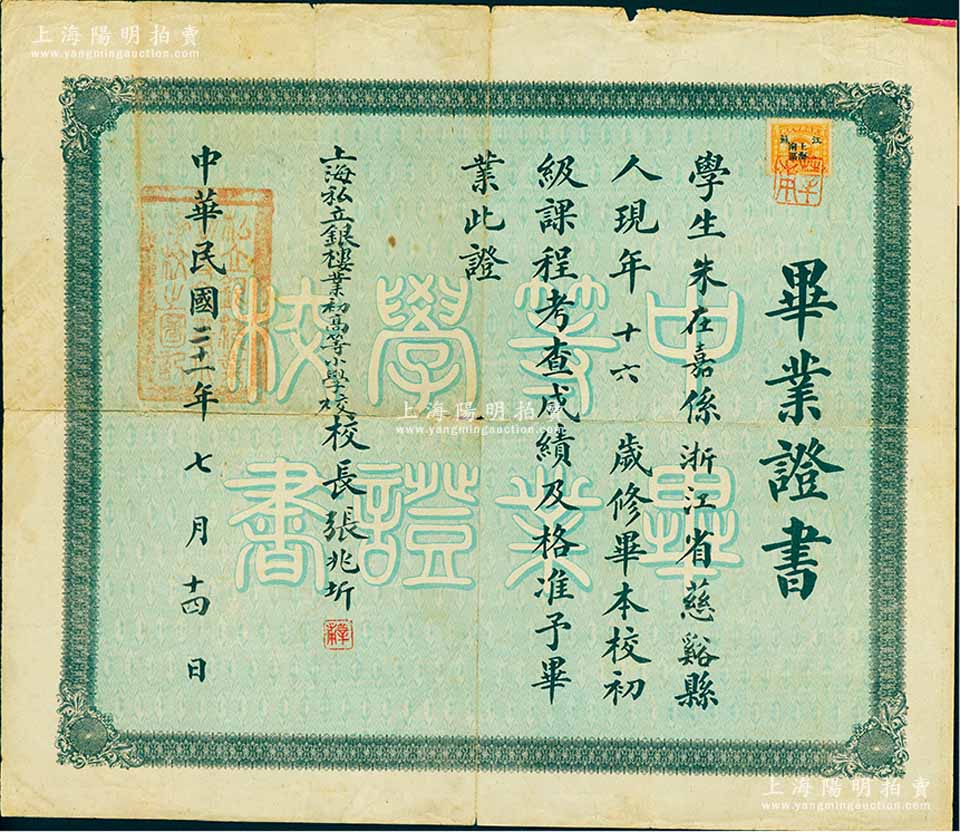 上海陽明拍賣
www.yangmingauction.com
江蘇
上海
畢業證書
學生朱在嘉係浙江省慈谿縣
人現年十六歲修畢本校初
級課程考查成績及格准予畢
業此證
上海私立銀樓業初高等小學校校長張兆圻
中華民國二十一年七月十四日
中等學校
畢業證書
上海陽明拍賣
www.yangmingauction.com
上海陽明拍賣
www.yangmingauction.com